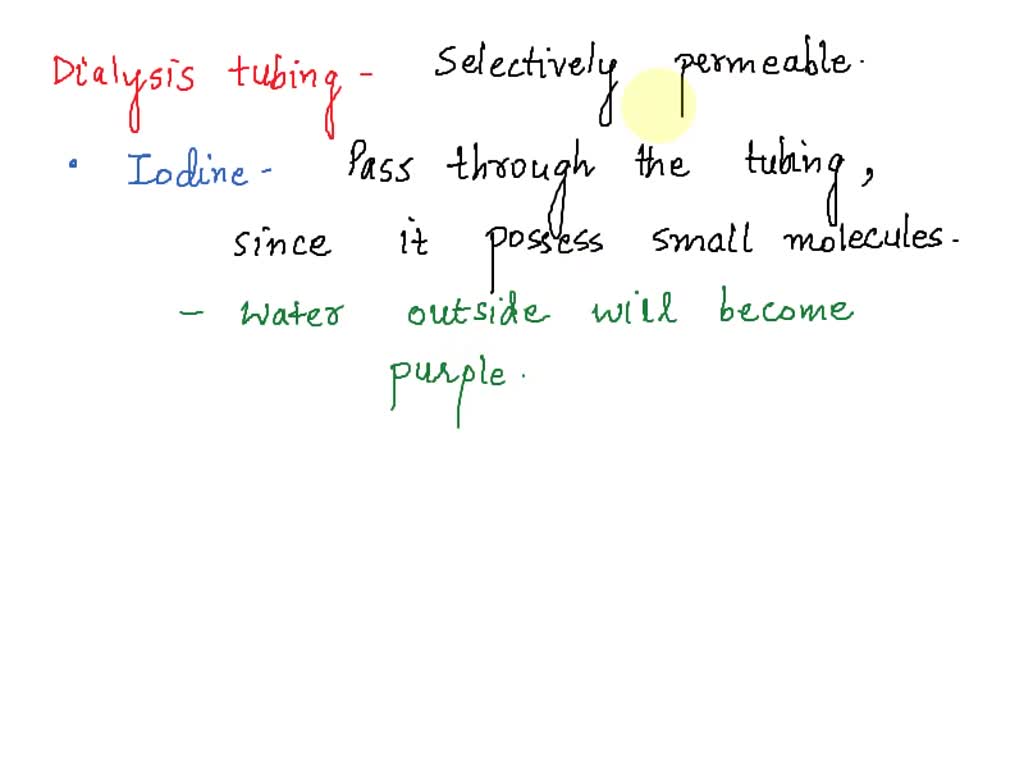 Dialysis tubing - Selectively permeable.
• Iodine - Pass through the tubing,
since it possess small molecules.
- Water outside will become
purple.